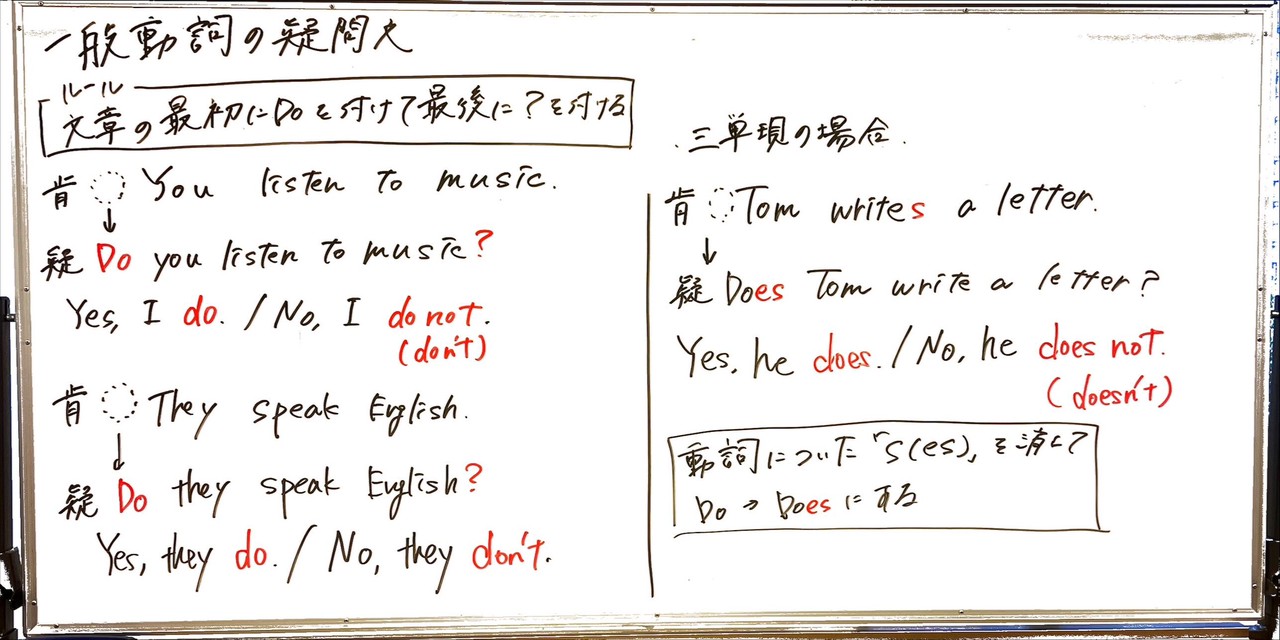 一般動詞の疑問文
ルール
文章の最初にDoを付けて最後に?を付ける
肯 You listen to music.
↓
疑 Do you listen to music?
Yes, I do. / No, I do not.
(don't)
肯 They speak English.
↓
疑 Do they speak English?
Yes, they do. / No, they don't.
三単現の場合.
肯 Tom writes a letter.
↓
疑 Does Tom write a letter?
Yes, he does. / No, he does not.
(doesn't)
動詞についた「s(es)」を消して
Do → Doesにする